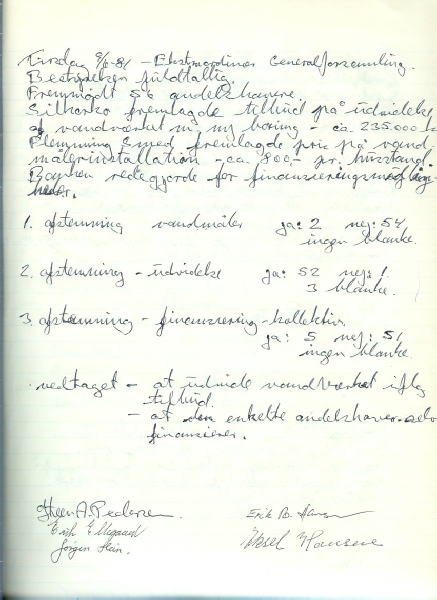 Tirsdag 9/6-81 - Ekstraordinær Generalforsamling.
Bestyrelsen fuldtallig.
Fremmødt 56 andelshavere
Silhorko fremlagde tilbud på udvidelse
af vandværket m. ny boring - ca. 235.000 kr
Flemming Smed fremlagde pris på vand
målerinstallation - ca. 800,- pr. husstand.
Banken redegjorde for finansieringsmulig-
heder.
1. afstemning vandmåler ja: 2 nej: 54
ingen blanke.
2. afstemning - udvidelse ja: 52 nej: 1.
3 blanke.
3. afstemning - finansiering - kollektiv.
ja: 5 nej: 51
ingen blanke.
vedtaget - at udvide vandværket iflg
tilbud.
- at den enkelte andelshaver selv
finansierer.
Steen A. Pedersen. Erik B. Hansen
Erik
Jørgen Stein. Aksel Hansen